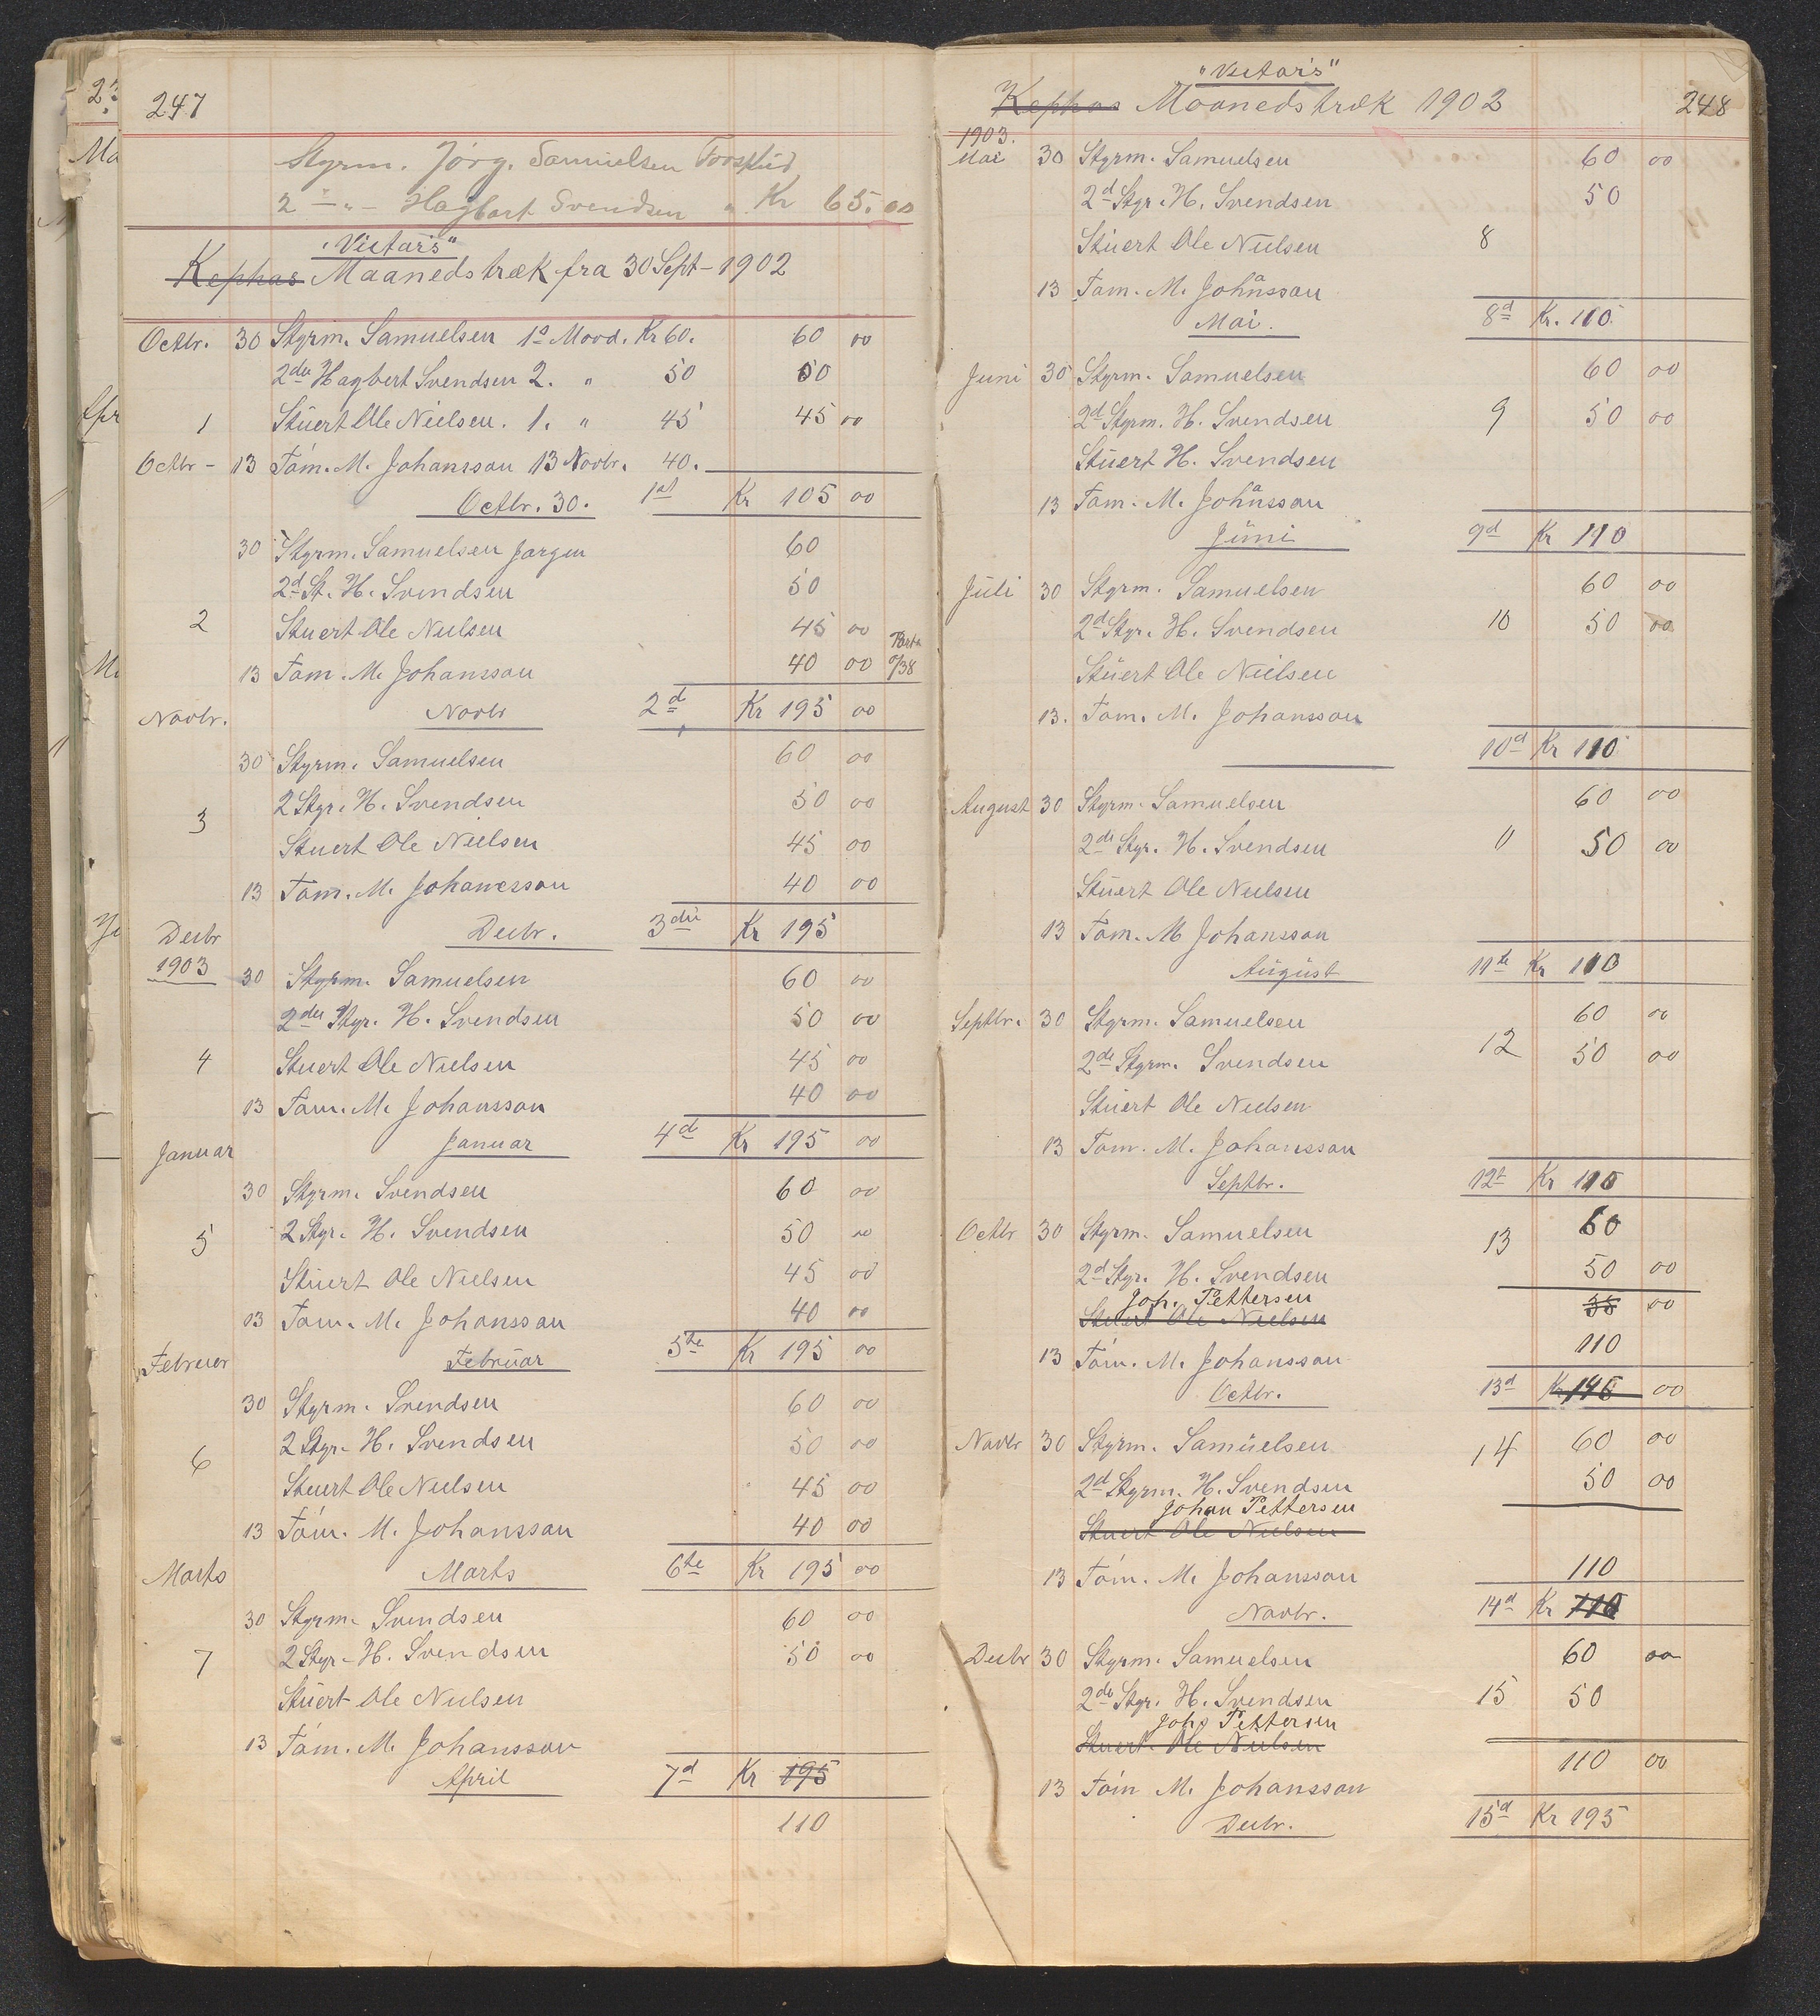 247
Styrm. Jörg. Samuelsen Forskud
2 - " - Hagbart Svendsen " Kr 65.00
"Victor's"
Kephas Maanedstræk fra 30 Sept - 1902
Octbr. 30 Styrm. Samuelsen 1ª Maad. Kr 60. 60 00
2den Hagbert Svendsen 2. " 50 50
1 Stuert Ole Nielsen. 1. " 45 45 00
Octbr - 13 Tøm. M. Johansson 13 Novbr. 40.
Octbr. 30. 1st Kr 105 00
30 Styrm. Samuelsen Jørgen 60
2d St. H. Svendsen 50
2 Stuert Ole Nielsen 45 00
13 Tøm. M. Johansson 40 00 Porto o/38
Novbr. Novbr 2d Kr 195 00
30 Styrm. Samuelsen 60 00
2 Styr. H. Svendsen 50 00
3 Stuert Ole Nielsen 45 00
13 Tøm. M. Johansson 40 00
Decbr Decbr. 3die Kr 195
1903 30 Styrm. Samuelsen 60 00
2den Styr. H. Svendsen 50 00
4 Stuert Ole Nielsen 45 00
13 Tøm. M. Johansson 40 00
Januar Januar 4de Kr 195 00
30 Styrm. Svendsen 60 00
5 2 Styr. H. Svendsen 50 00
Stuert Ole Nielsen 45 00
13 Tøm. M. Johansson 40 00
Februer Februar 5te Kr 195 00
30 Styrm. Svendsen 60 00
2 Styr. H. Svendsen 50 00
6 Stuert Ole Nielsen 45 00
13 Tøm. M. Johansson 40 00
Marts Marts 6te Kr 195 00
30 Styrm. Svendsen 60 00
7 2 Styr - H. Svendsen 50 00
Stuert Ole Nielsen
13 Tøm. M. Johansson
April 7d Kr 195
110
"Victor's"
Kephas Maanedstræk 1902 248
1903.
Mai 30 Styrm. Samuelsen 60 00
2d Styr. H. Svendsen 50
Stuert Ole Nielsen 8
13 Tøm. M. Johansson
Mai. 8d Kr. 110
Juni 30 Styrm. Samuelsen 60 00
2d Styrm. H. Svendsen 9 50 00
Stuert H. Svendsen
13 Tøm. M. Johansson
Juni 9d Kr 110
Juli 30 Styrm. Samuelsen 60 00
2de Styr. H. Svendsen 10 50 00
Stuert Ole Nielsen
13. Tøm. M. Johansson
10d Kr 110
August 30 Styrm. Samuelsen 60 00
2de Styr. H. Svendsen 11 50 00
Stuert Ole Nielsen
13 Tøm. M Johansson
August 11te Kr 110
Septbr. 30 Styrm. Samuelsen 60 00
2de Styrm. Svendsen 12 50 00
Stuert Ole Nielsen
13 Tøm. M. Johansson
Septbr. 12t Kr 110
Octbr 30 Styrm. Samuelsen 13 60
2d Styr. H. Svendsen 50 00
Joh. Pettersen
Stuert Ole Nielsen 35 00
110
13 Tøm. M. Johansson
Octbr. 13d Kr 145 00
Novbr 30 Styrm. Samuelsen 14 60 00
2d Styrm. H. Svendsen 50 00
Johan Pettersen
Stuert Ole Nielsen
13 Tøm. M. Johansson 110
Novbr. 14d Kr 110
Decbr 30 Styrm. Samuelsen 60 00
2de Styr. H. Svendsen 15 50
Johs Pettersen
Stuert Ole Nielsen
110 00
13 Tøm M. Johansson
Decbr. 15d Kr 195